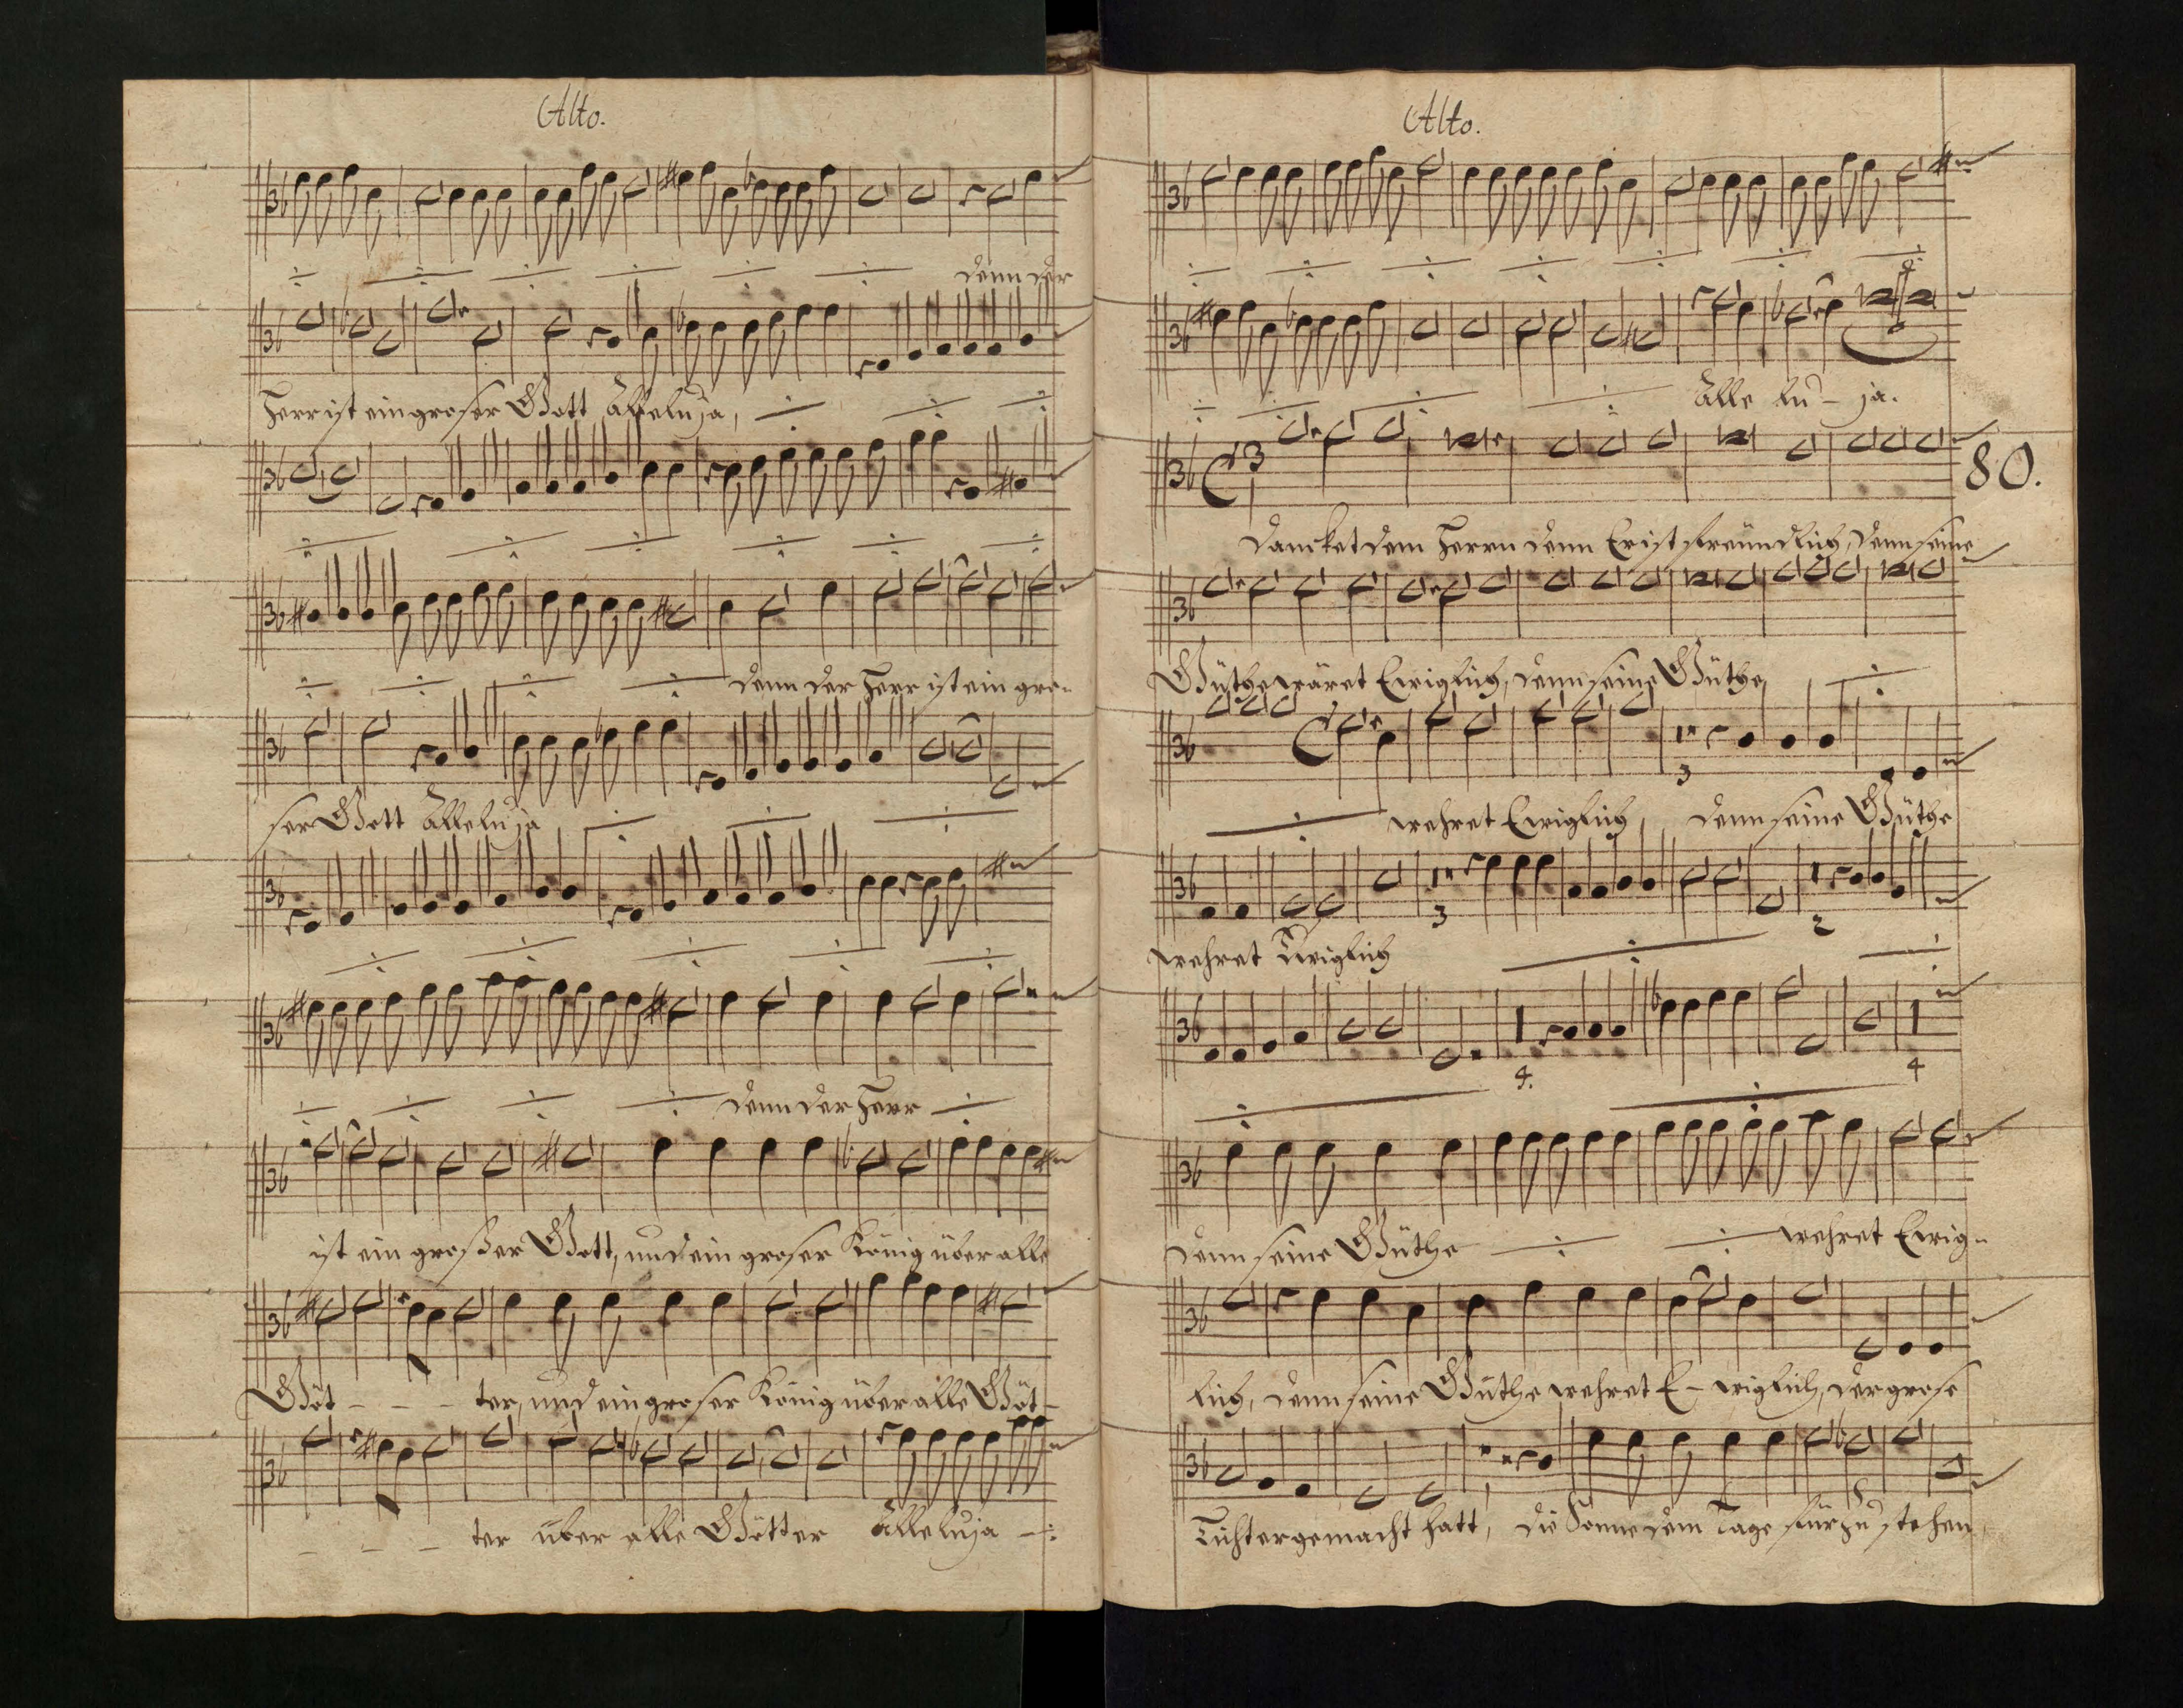 Alto.
denn der
Herr ist ein groser Gott Alleluja,
denn der Herr ist ein gro-
ser Gott Alleluja
denn der Herr
ist ein großer Gott, und ein groser König über alle
Göt - - - ter, und ein groser König über alle Göt-
- - - ter über alle Götter Alleluja
Alto.
Alle lu - ja.
3
80.
Dancket dem Herrn denn Er ist freundlich, denn seine
Güthe wäret Ewiglich, denn seine Güthe
3
wehret Ewiglich, denn seine Güthe
3 2
wehret Ewiglich
4. 4
denn seine Güthe wehret Ewig-
lich, denn seine Güthe wehret E- wiglich, der grose
Lichter gemacht hatt, die Sonne dem Tage fürzustehen,